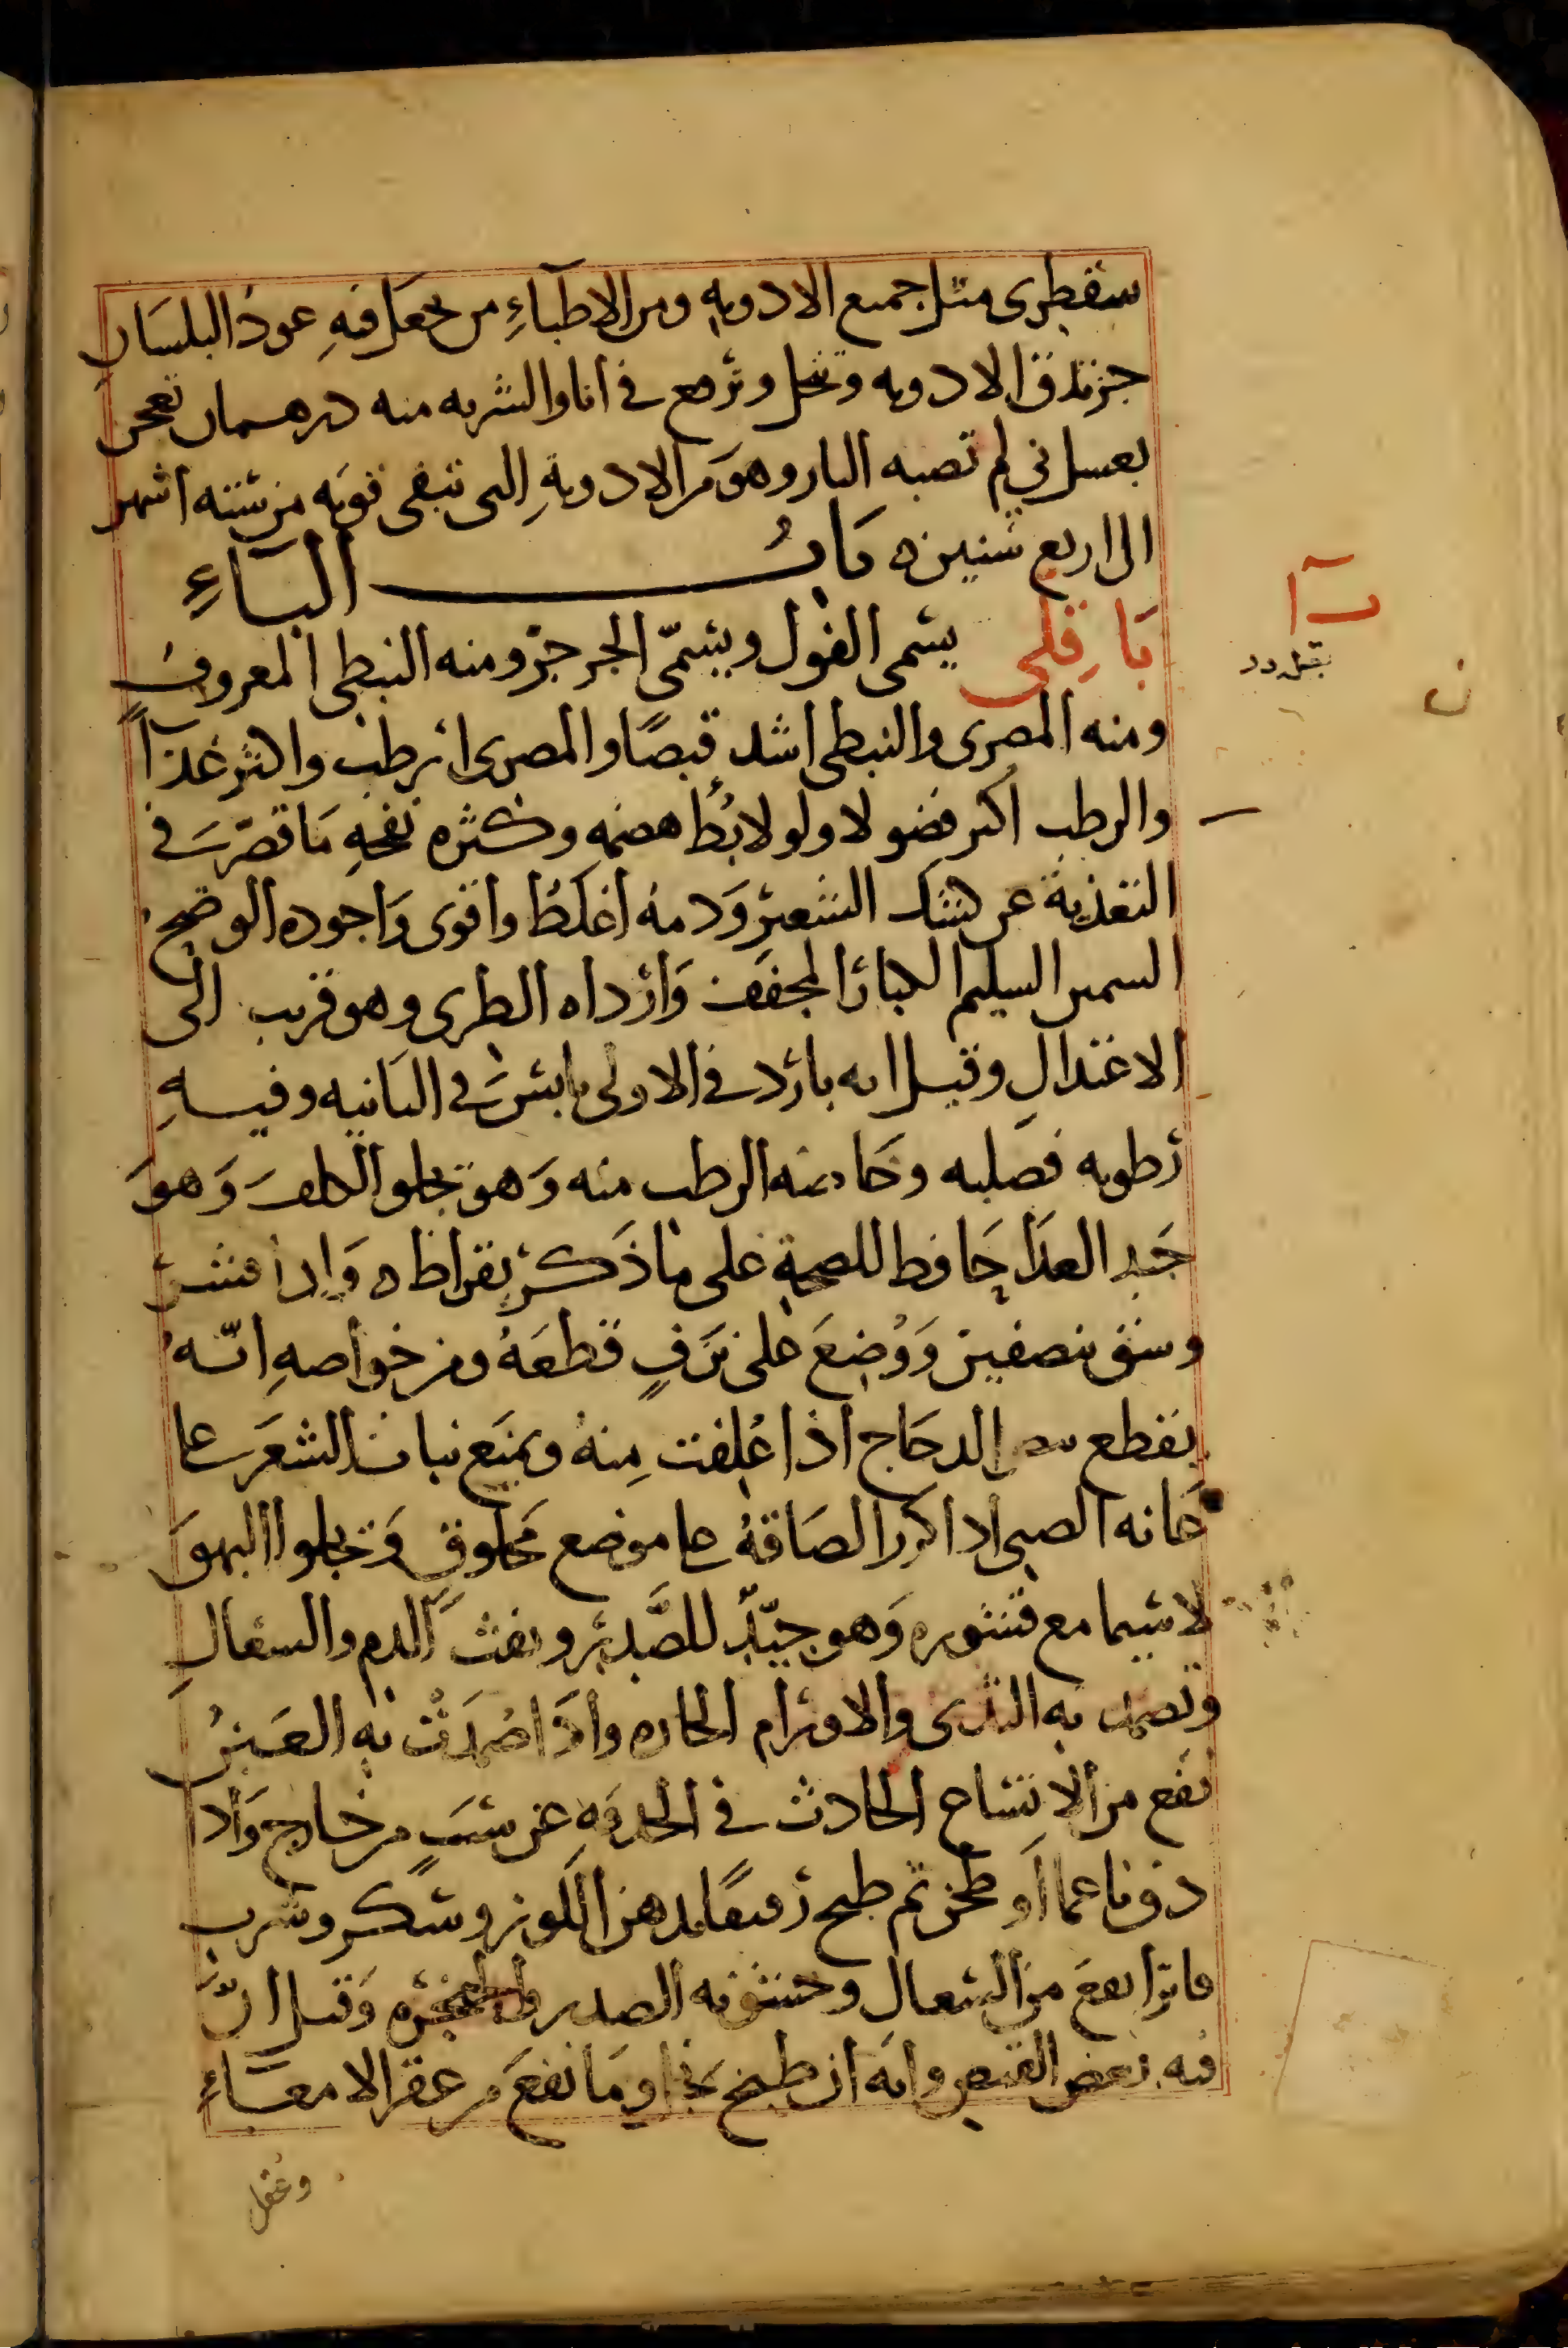 سقطرى مثل جميع الادويه ومن الاطباءِ من يجعل فيهِ عود البلسان
جز تدق الادويه وتنخل وترفع في انا والشربه منه درهمان تعجن
بعسل ني لم تصبه النار وهوَ من الادويةِ التى تبقى قوته من ستة اشهر
الى اربع سنين ه بَابُ البَاءِ
بَاقِلى يسمى الفول ويسمّى الجرجر ومنه النبطى المعروف
ومنه المصرى والنبطى اشد قبضًا والمصرى ارطب واكثر غذآ
والرطب اكثر فضولا ولولا بُطأ هضمه وكثره نفخهِ ما قصّر في
التغذية عن كشك الشعير وَدمهُ اغلظُ واقوى وَاجوده الوضيح
السمين السليم الكبار المجفف وَارداه الطرى وهو قريب الى
الاعتدالِ وقيل انه بارد في الاولى يابس في الثانيه وفيهِ
رطوبه فضليه وخاصه الرطب منه وَهو يجلو الكلف وَهوَ
جَيد الغذَا حَافظ للصحةِ على ما ذَكر بقراط ه وَاذا قشر
وشق نصفين وَوُضِعَ على نزفٍ قطعَهُ ومن خواصهِ انّه
يقطع بيض الدجاج اذا عُلِفت مِنهُ ويمنَع نبات الشعَر على
عَانه الصبى اذا كرر الصَاقهُ على موضع مَحلوق وَيجلوا البهق
لا سيما مع قشوره وَهو جيّدٌ للصَّدر ونفث الدم والسعالِ
وتضمد به الثدى والاورام الحاره واذَا ضُمِدَتْ به العَينُ
نفع من الاتساع الحادث في الحدقهِ عن سَببٍ من خارج وَاذا
دق ناعما اَو طحن ثم طبخ رقيقًا بدهن اللوز وسكر وشرب
فاترا نفعَ من السعال وخشونه الصدر والحنجره وَقيل انّ
فيه بعض القبض وانَه ان طبخ بخل ومَا نفعَ من عقر الامعَاءِ
وعقل